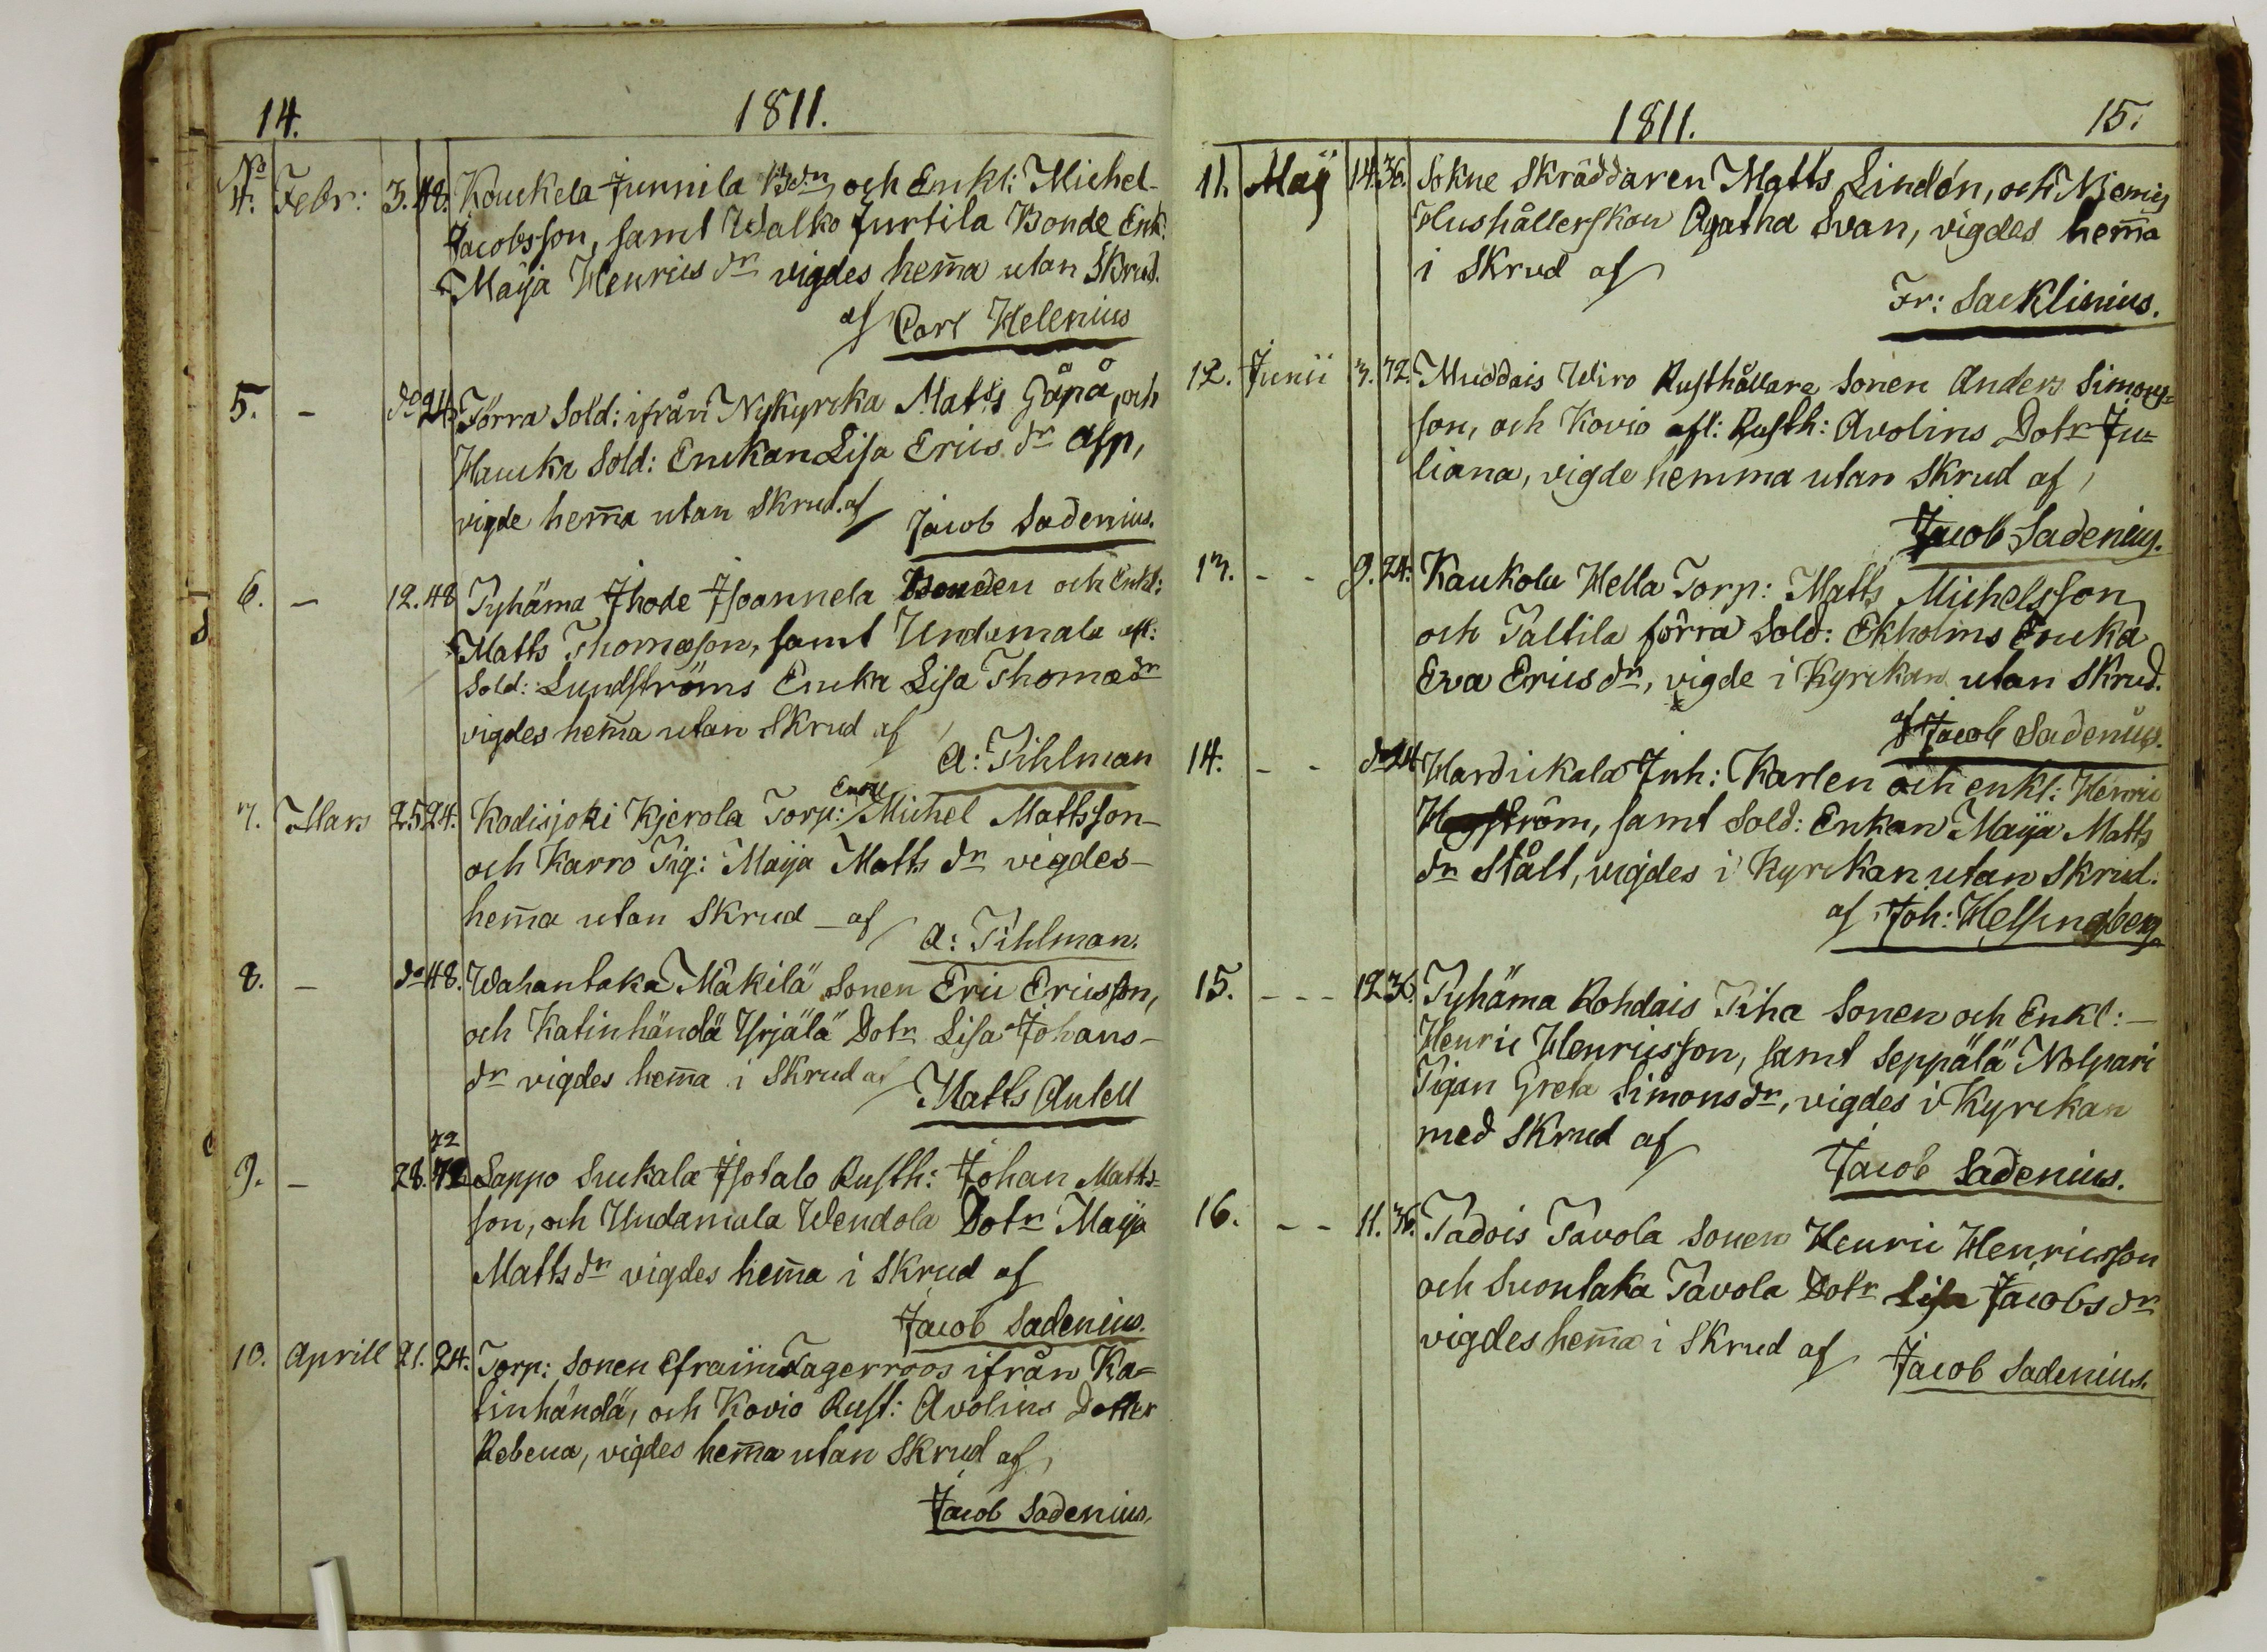 14. 1811.
No
4. Febr: 3. 48. Kaukela Junnila Bdn och Enkl: Michel
Jacobsson, samt Walko Jurtila Bonde Enk.
Maija Henrics dr vigdes hem̄a utan Skrud.
af Carl Helenius
5. - do 24. Förra Sold: ifrån Nykyrcka Matts Gåpå, och
Haucka Sold: Enckan Lisa Erics dr Asp,
vigde hem̄a utan Skrud. af
Jacob Sadenius.
6. - 12. 48 Pyhäma Ihode Isoannela Bonden och Enkl:
Matts Thomasson, samt Undamala afl:
Sold: Lundströms Encka Lisa Thomædr
vigdes hem̄a utan Skrud af
A: Pihlman
7. Mars 25. 24. Kodisjoki Kjerola Torp: Enkl Michel Mattsson
och Karro Pig: Maija Matts dr vigdes
hem̄a utan Skrud af
A: Pihlman.
8. - do 48. Wahantaka Mäkilä Sonen Eric Ericsson,
och Katinhändä Yrjälä Dotr Lisa Johans-
dr vigdes hem̄a i Skrud af
Matts Aulell
72
9. - 28. 72 Sappo Suckala Isotalo Rusth: Johan Matts=
son, och Undamala Wendola Dotr Maija
Mattsdr vigdes hem̄a i Skrud af
Jacob Sadenius.
10. Aprill 21. 24. Torp: Sonen Efraim Lagerroos ifrån Ka=
tinhändä, och Kovio Rust: Avolins Dotter
Rebecca, vigdes hem̄a utan Skrud af,
Jacob Sadenius.
1811. 15.
11. Maij 14. 36. Sokne Skräddaren Matts Lindén, och Niemis
Hushållerskan Agatha Svan, vigdes hem̄a
i Skrud af
Fr: Sacklinius.
12. Junii 3. 72. Muddais Wiro Rusthållare Sonen Anders Simons=
son, och Kovio afl: Rusth: Avolins Dotr Ju=
liana, vigde hemma utan Skrud af,
Jacob Sadenius.
13. - - 9. 24. Kaukola Hella Torp: Matts Michelsson
och Taltila förra Sold: Ekholms Encka
Eva Ericsdr, vigde i Kyrckan utan Skrud.
af Jacob Sadenius.
14. - - do 24 Hardickala Inh: Karlen och enkl: Henric
Hagström, samt Sold: Enkan Maija Matts
dr Stålt, vigdes i Kyrckan utan Skrud.
af Joh: Helsingberg
15. - - - 12 36. Pyhäma Rohdais Piha Sonen och Enkl:
Henric Henricsson, samt Seppälä Nolpari
Pigan Greta Simonsdr, vigdes i Kyrckan
med Skrud af
Jacob Sadenius.
16. - - 11. 36. Padois Pavola Sonen Henric Henricsson
och Suontaka Pavola Dotr Lisa Jacobs dr
vigdes hem̄a i Skrud af
Jacob Sadenius.